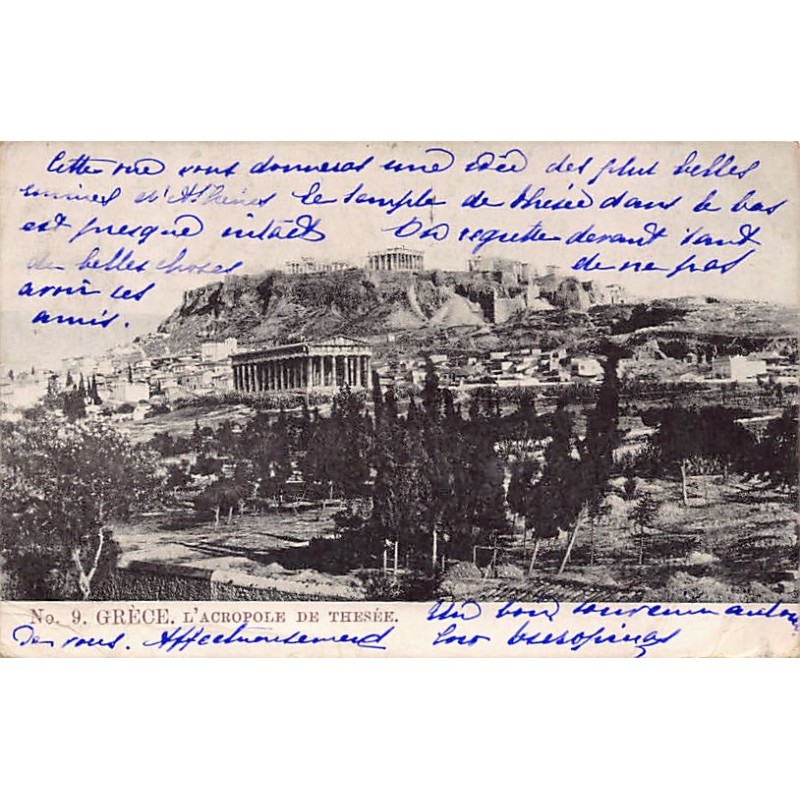 Cette vue vous donneras une idée des plus belles
ruines d'Athènes le temple de thésée dans le bas
est presque intact On regrette devant tant
de belles choses de ne pas
avoir ses
amis.
No. 9. GRÈCE. L'ACROPOLE DE THESÉE.
Un bon souvenir autour
de vous. Affectueusement